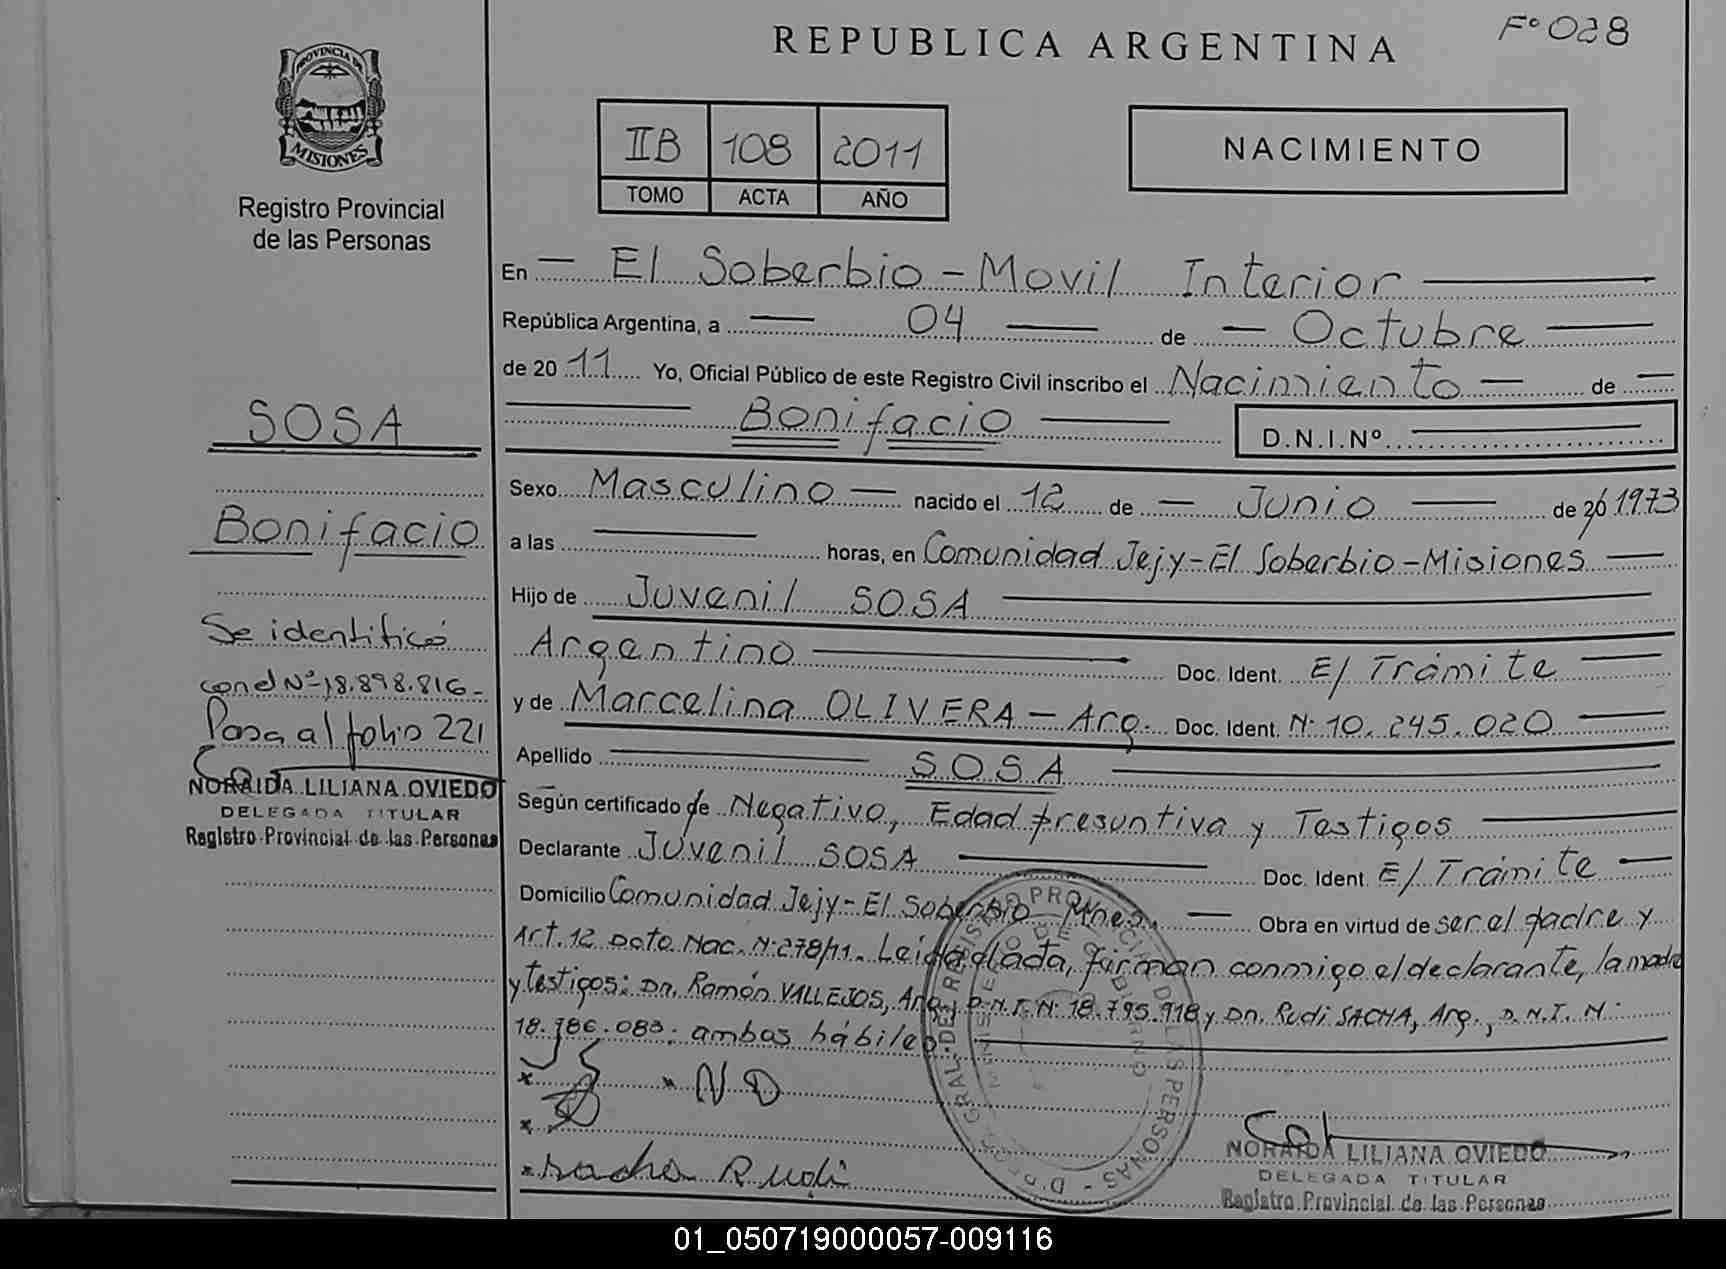 Fº 028
REPUBLICA ARGENTINA
PROVINCIA DE
MISIONES
Registro Provincial
de las Personas
IIB 108 2011
TOMO ACTA AÑO
NACIMIENTO
En — El Soberbio - Movil Interior
República Argentina, a — 04 — de — Octubre
de 20 11 Yo, Oficial Público de este Registro Civil inscribo el Nacimiento — de —
Bonifacio D.N.I.Nº
Sexo Masculino — nacido el 12 de — Junio — de 20 1973
a las — horas, en Comunidad Jejy - El Soberbio - Misiones
Hijo de Juvenil SOSA
Argentino Doc. Ident. E/ Trámite
y de Marcelina OLIVERA - Arg. Doc. Ident. Nº 10.245.020
Apellido SOSA
Según certificado de Negativo, Edad presuntiva y Testigos
Declarante Juvenil SOSA Doc. Ident. E/ Trámite
Domicilio Comunidad Jejy - El Soberbio Mnes. — Obra en virtud de ser el padre y
Art. 12 Dcto Nac. Nº 278/11. Leída el acta, firman conmigo el declarante, la madre
y testigos: Dn. Ramón VALLEJOS, Arg., D.N.I. Nº 18.795.918 y Dn. Rudi SACHA, Arg., D.N.I. Nº
18.786.083. ambos hábiles
x
x ND
x
x Sacha Rudi
NORAIDA LILIANA OVIEDO
DELEGADA TITULAR
Registro Provincial de las Personas
SOSA
Bonifacio
Se identificó
con el Nº 18.898.816-
Pasa al folio 221
NORAIDA LILIANA OVIEDO
DELEGADA TITULAR
Registro Provincial de las Personas
01_050719000057-009116